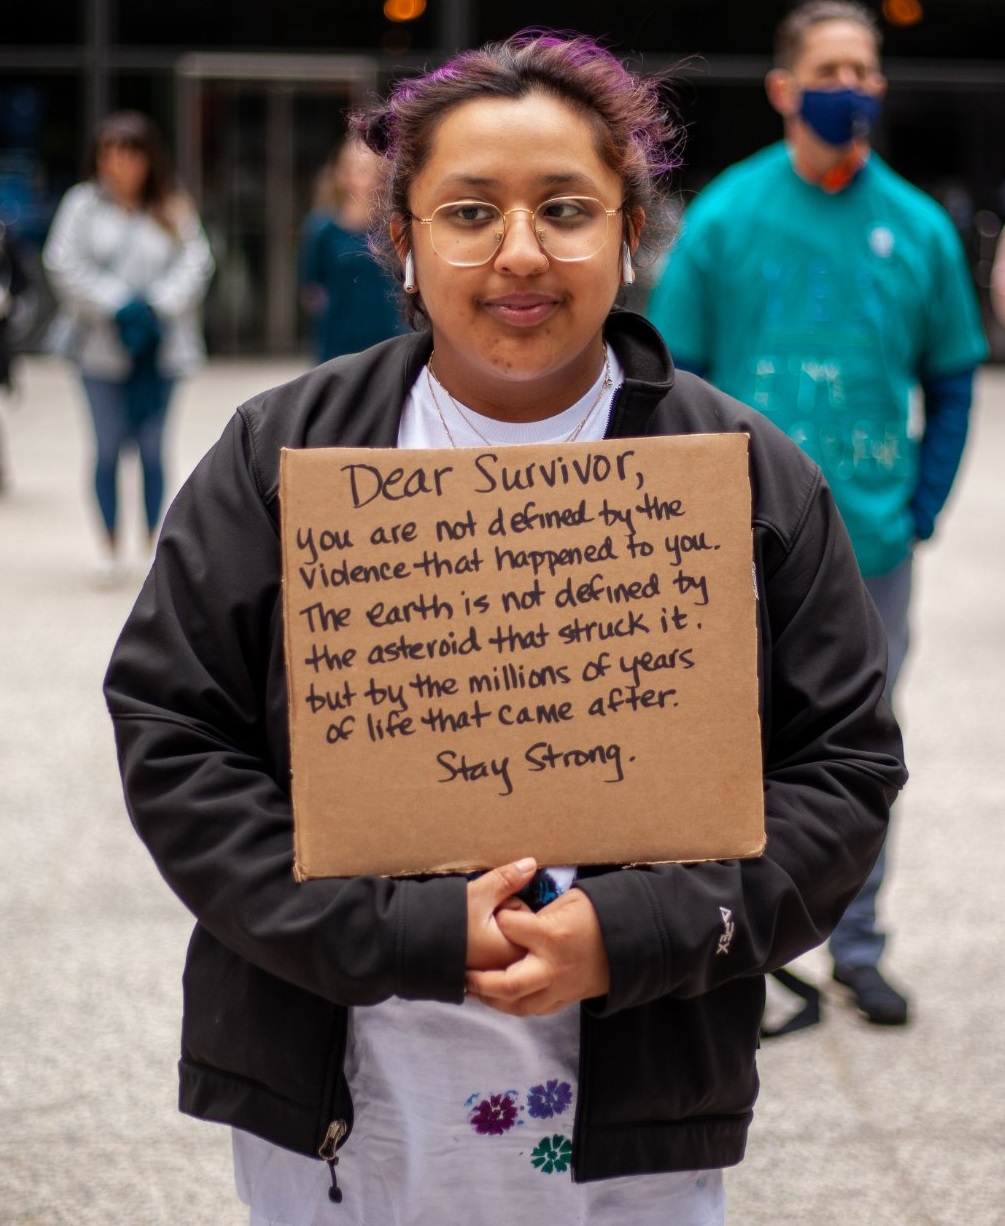 Dear Survivor,
you are not defined by the
violence that happened to you.
The earth is not defined by
the asteroid that struck it.
but by the millions of years
of life that came after.
Stay Strong.
APEX